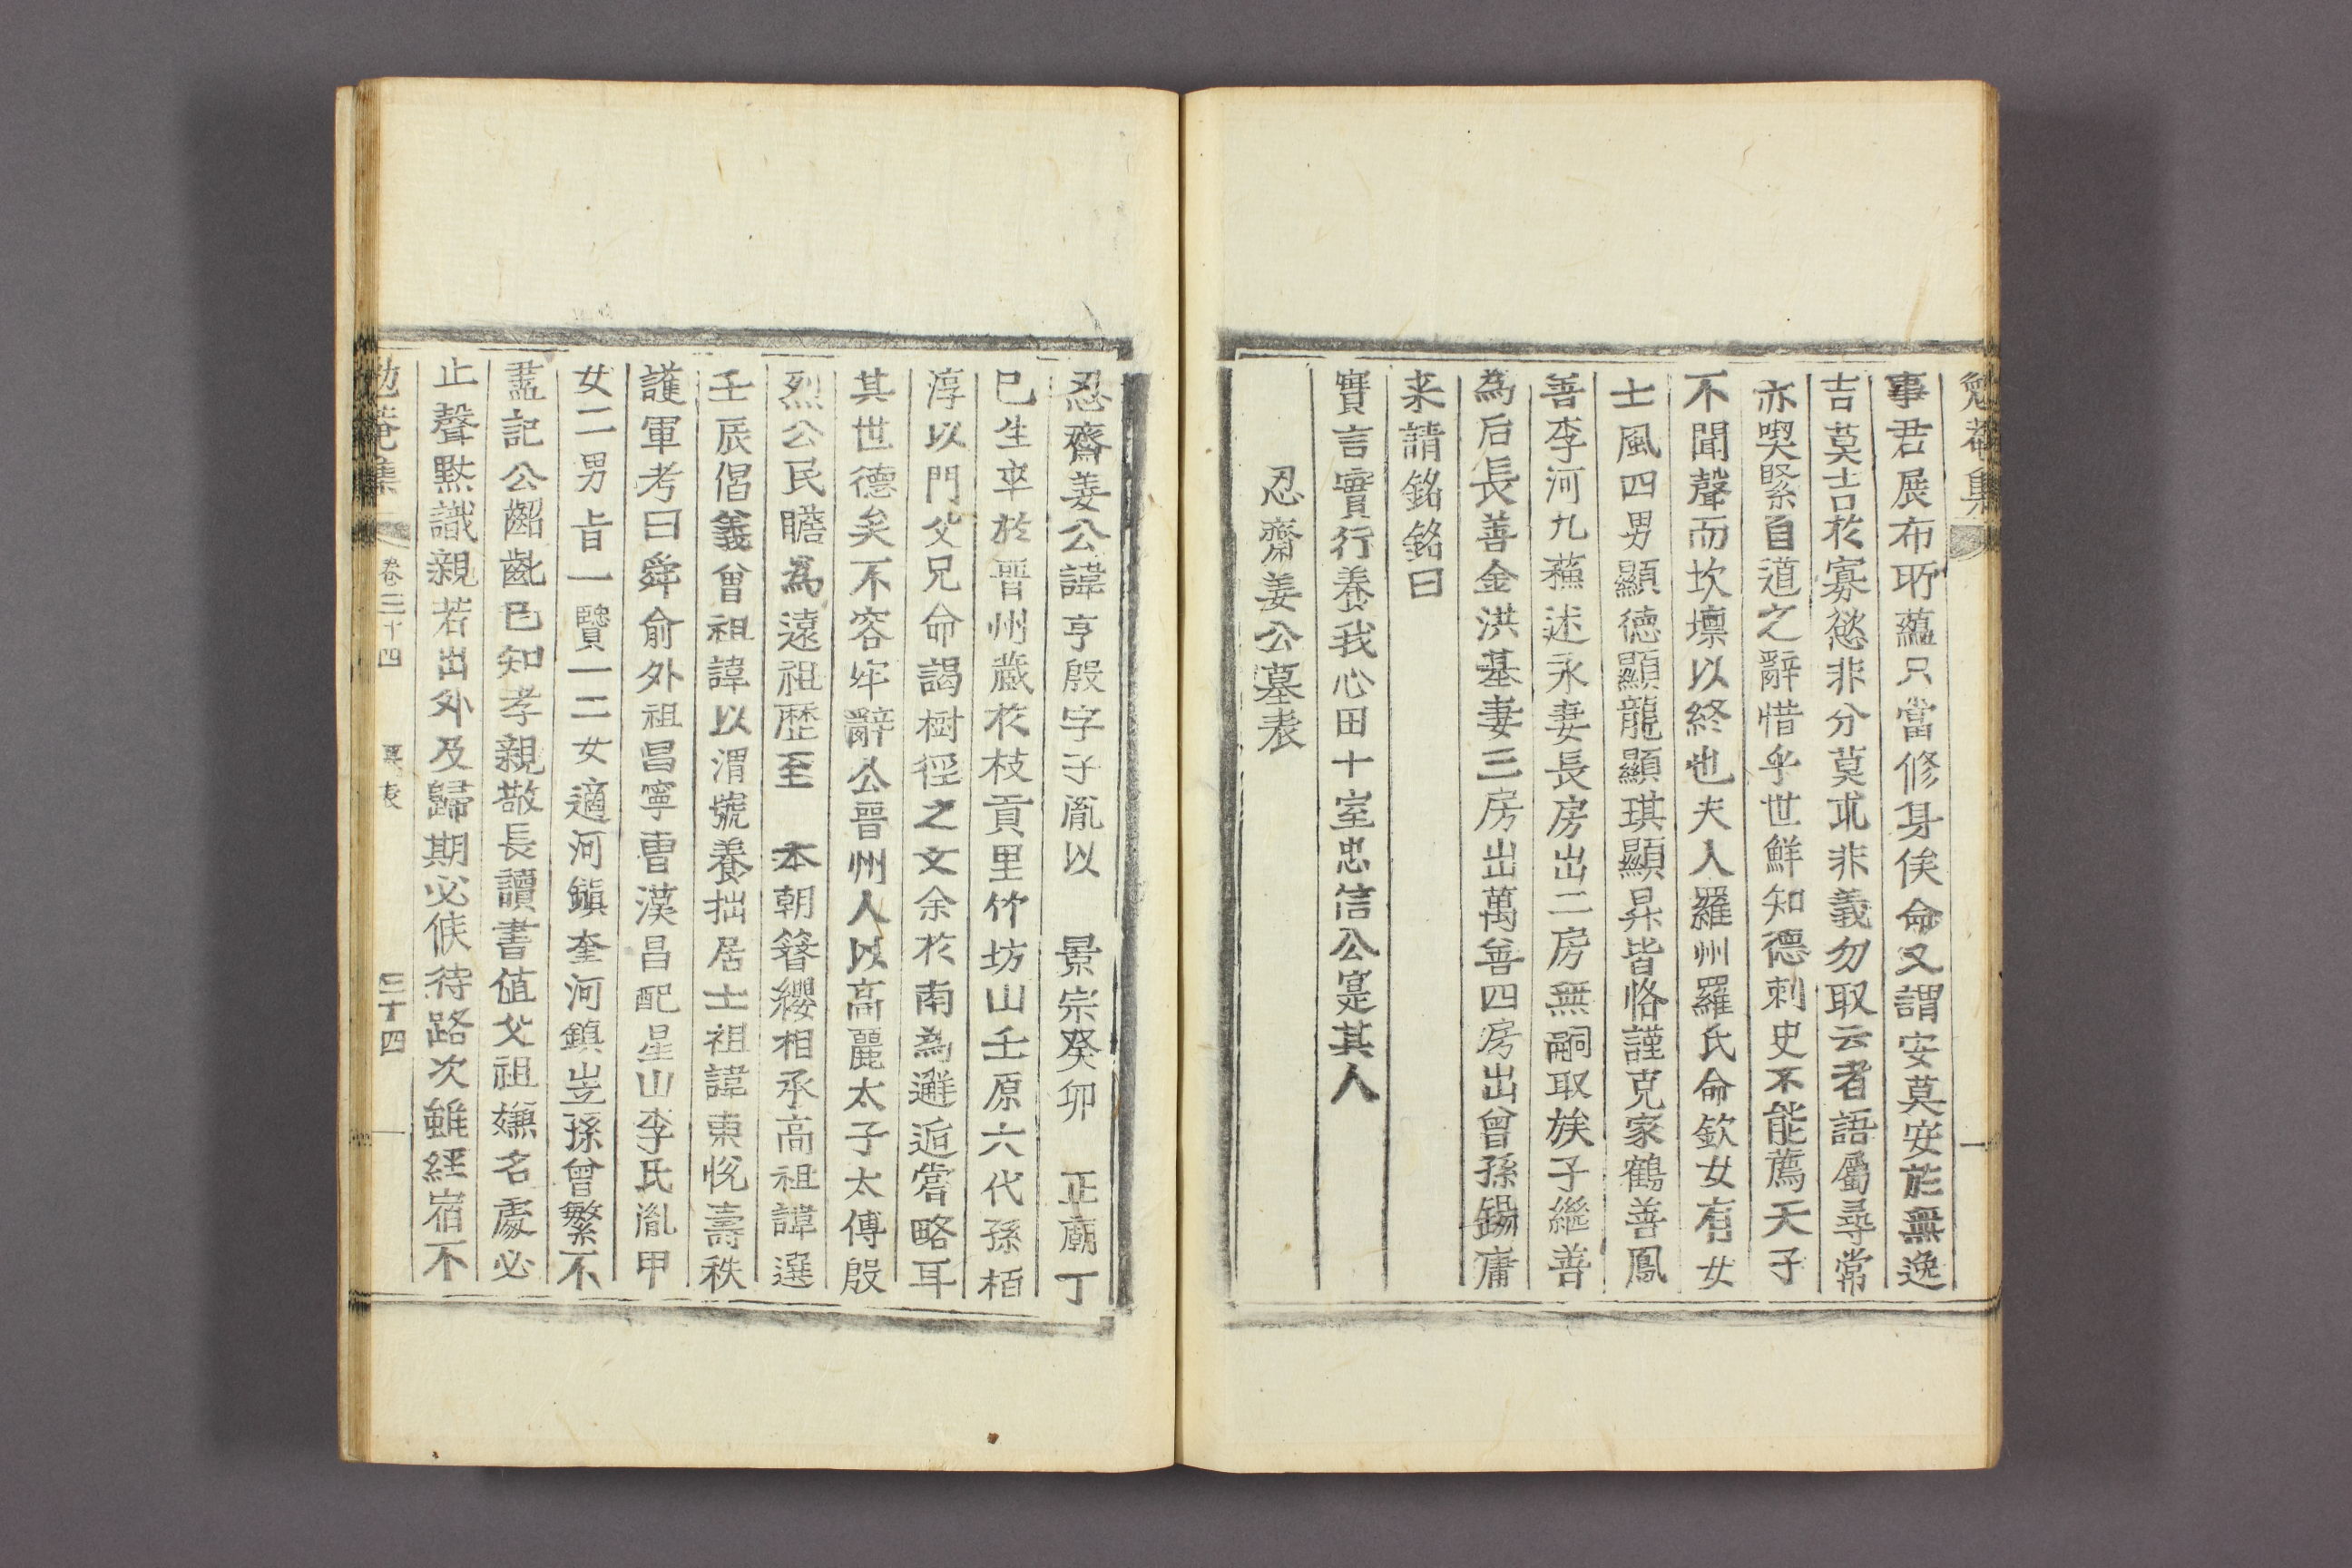 勉菴集
事君展布所蘊只當修身俟命又謂安莫安於無逸
吉莫吉於寡慾非分莫求非義勿取云者語屬尋常
亦喫緊自道之辭惜乎世鮮知德刺史不能薦天子
不聞聲而坎壈以終也夫人羅州羅氏命欽女有女
士風四男顯德顯龍顯琪顯昇皆恪謹克家鶴善鳳
善李河九蘓述永妻長房出二房無嗣取族子繼善
為后長善金洪基妻三房出萬善四房出曾孫錫庸
来請銘銘曰
實言實行養我心田十室忠信公寔其人
忍齋姜公墓表
忍齋姜公諱亨殷字子胤以　景宗癸卯　正廟丁
巳生卒於晋州葳於枝貢里竹坊山壬原六代孫栢
淳以門父兄命謁樹徑之文余於南為邂逅嘗略耳
其世德矣不容牢辭公晋州人以高麗太子太傅殷
烈公民瞻為遠祖歷至　本朝簪纓相承高祖諱選
壬辰倡義曾祖諱以渭號養拙居士祖諱東悅壽秩
護軍考曰舜俞外祖昌寧曹漢昌配星山李氏胤甲
女二男㫖一贒一二女適河鎭奎河鎭岦孫曾繁不
盡記公齠齔已知孝親敬長讀書値父祖嫌名處必
止聲黙識親若出外及歸期必候待路次雖經宿不
勉菴集　卷三十四　墓表　三十四